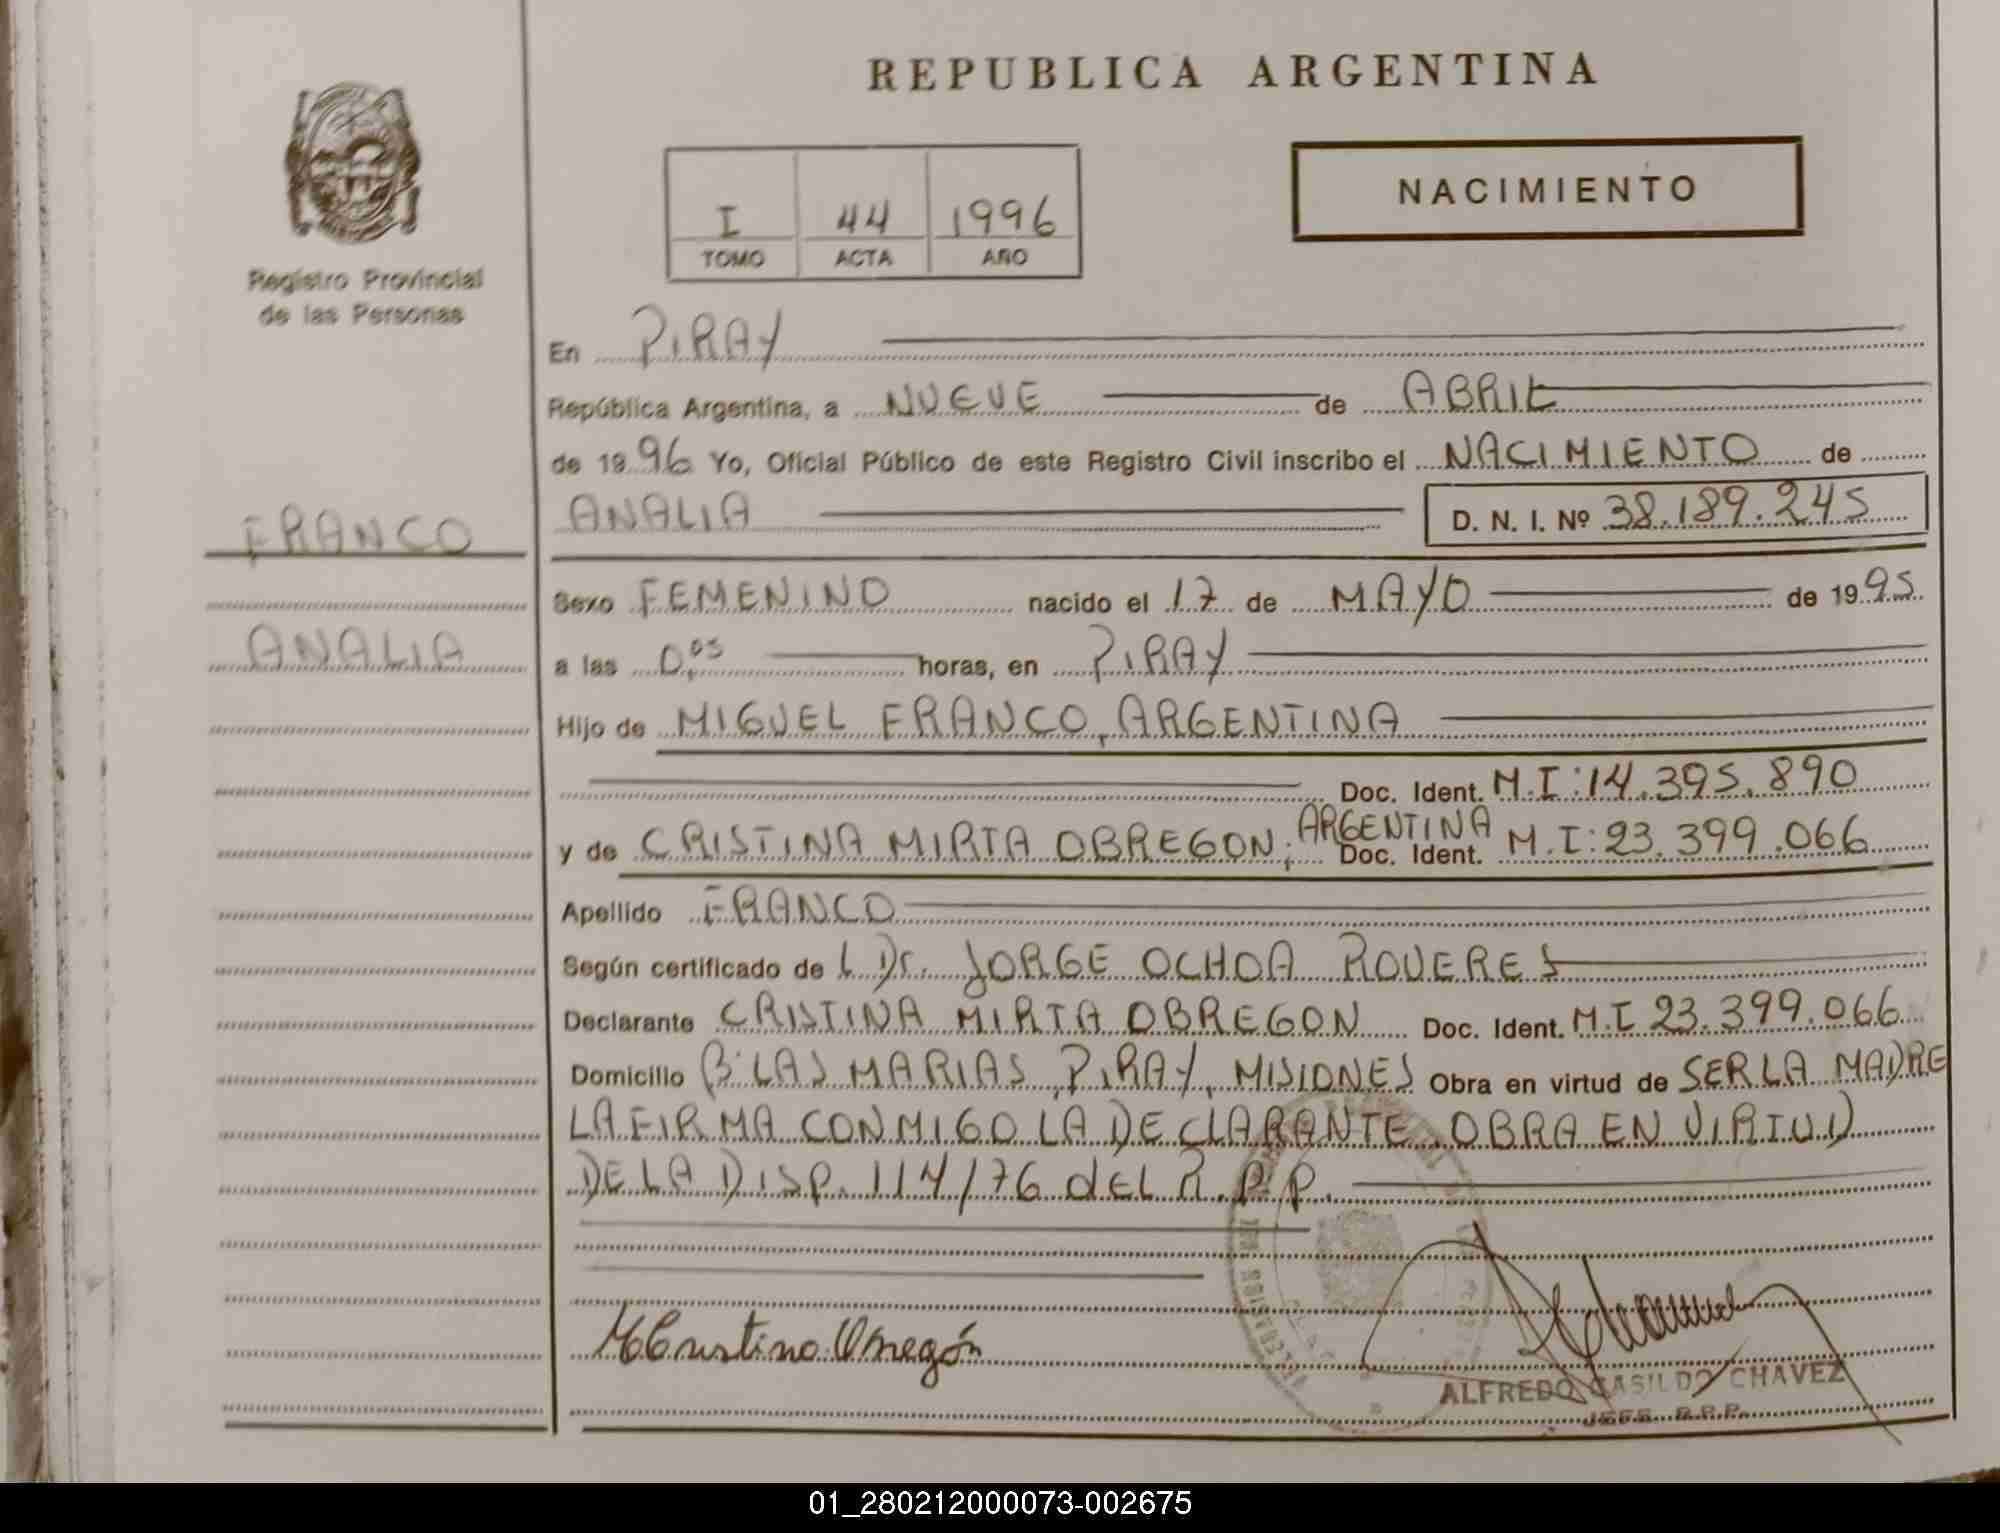 REPUBLICA ARGENTINA
NACIMIENTO
I 44 1996
TOMO ACTA AÑO
Registro Provincial
de las Personas
En PIRAY
República Argentina, a NUEVE de ABRIL
de 1996 Yo, Oficial Público de este Registro Civil inscribo el NACIMIENTO de
ANALIA D. N. I. Nº 38.189.245
FRANCO
ANALIA
Sexo FEMENINO nacido el 17 de MAYO de 1995
a las 0,05 horas, en PIRAY
Hijo de MIGUEL FRANCO, ARGENTINA
Doc. Ident. M.I: 14.395.890
y de CRISTINA MIRTA OBREGON; ARGENTINA Doc. Ident. M.I: 23.399.066
Apellido FRANCO
Según certificado de L Dr. JORGE OCHOA ROVERES
Declarante CRISTINA MIRTA OBREGON Doc. Ident. M.I 23.399.066
Domicilio Bº LAS MARIAS, PIRAY, MISIONES Obra en virtud de SER LA MADRE
LA FIRMA CONMIGO LA DECLARANTE. OBRA EN VIRTUD
DE LA DISP. 114/76 del R.P.P.
ALFREDO CASILDO CHAVEZ
JEFE R.P.P.
01_280212000073-002675